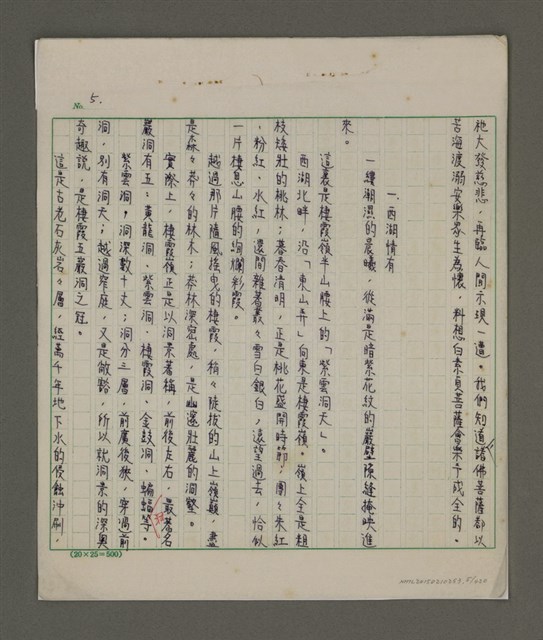 No. 5.
祂大發慈悲，再臨人間示現一遭。我們知道諸佛菩薩都以
苦海渡溺安樂眾生為懷，料想白素貞菩薩會樂予成全的。
一、西湖情有
一縷潮濕的晨曦，從滿是暗紫花紋的巖壁隙縫掩映進
來。
這裏是棲霞嶺半山腰上的「紫雲洞天」。
西湖北畔，沿「東山弄」向東是棲霞嶺。嶺上全是粗
枝矮壯的桃林；暮春清明，正是桃花盛開時節，團々朱紅
、粉紅、水紅，還間雜著叢々雪白銀白，遠望過去，恰似
一片棲息山腰的絢爛彩霞。
越過那片隨風搖曳的棲霞，稍々陡拔的山上嶺巔，盡
是森々莽々的林木；莽林深窈處，是幽邃壯麗的洞壑。
實際上，棲霞嶺正是以洞景著稱，前後左右，最著名
巖洞有五：黃龍洞、紫雲洞、棲霞洞、金鼓洞、蝙蝠洞等。
紫雲洞，洞深數十丈；洞分三層，前廣後狹，穿過前
洞，別有洞天；越過窄庭，又是敞豁，所以就洞景的深奧
奇趣說，是棲霞五巖洞之冠。
這是古老石灰岩々層，經萬千年地下水的侵蝕沖刷，
(20×25=500)